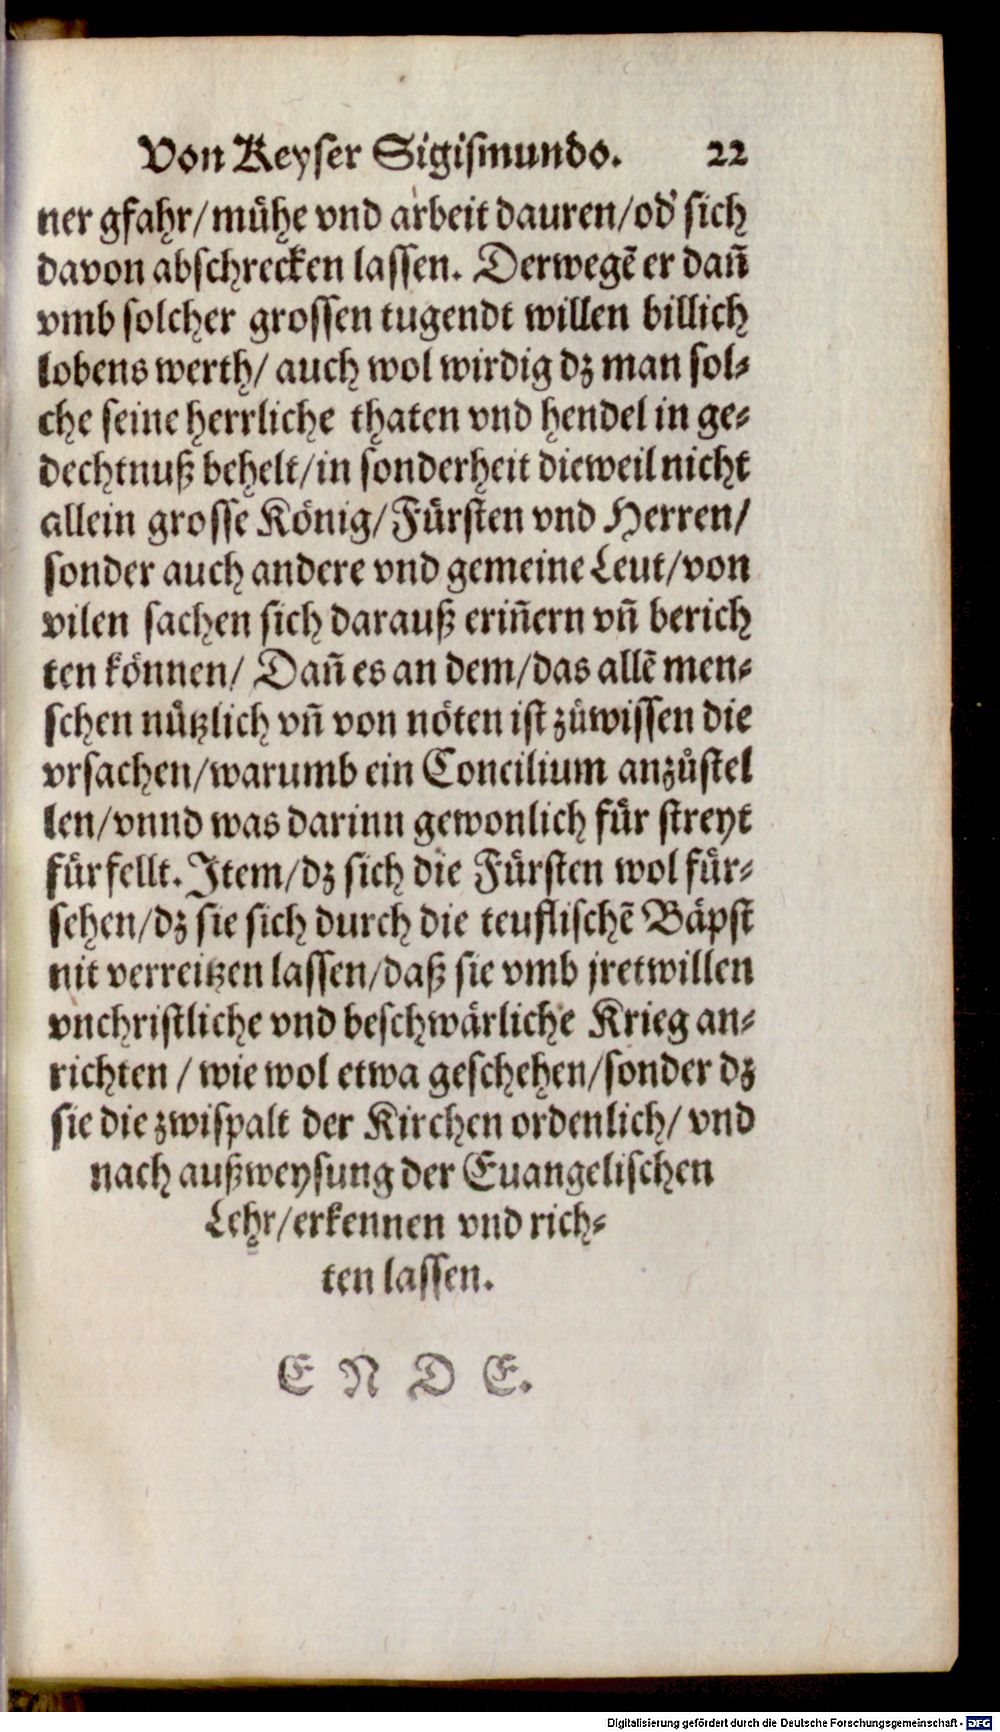 Von Keyser Sigismundo. 22
ner gfahr/ muͤhe vnd arbeit dauren/od' sich
davon abschrecken lassen. Derwegē er dañ
vmb solcher grossen tugendt willen billich
lobens werth/ auch wol wirdig dz man sol-
che seine herrliche thaten vnd hendel in ge-
dechtnuß behelt/in sonderheit dieweil nicht
allein grosse Koͤnig/Fuͤrsten vnd Herren/
sonder auch andere vnd gemeine Leut/von
vilen sachen sich darauß eriñern vñ berich
ten koͤnnen/ Dañ es an dem/das allē men-
schen nuͤtzlich vñ von noͤten ist zůwissen die
vrsachen/warumb ein Concilium anzůstel
len/vnnd was darinn gewonlich fuͤr streyt
fuͤrfellt. Item/dz sich die Fuͤrsten wol fuͤr-
sehen/dz sie sich durch die teuflischē Baͤpst
nit verreitzen lassen/daß sie vmb jretwillen
vnchristliche vnd beschwaͤrliche Krieg an-
richten / wie wol etwa geschehen/sonder dz
sie die zwispalt der Kirchen ordenlich/ vnd
nach außweysung der Euangelischen
Lehr/erkennen vnd rich-
ten lassen.
E N D E.
Digitalisierung gefördert durch die Deutsche Forschungsgemeinschaft - DFG